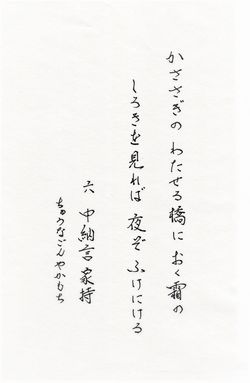 かささぎの わたせる橋に おく霜の
しろきを見れば 夜ぞ ふけにける
六 中納言家持
ちゅうなごんやかもち